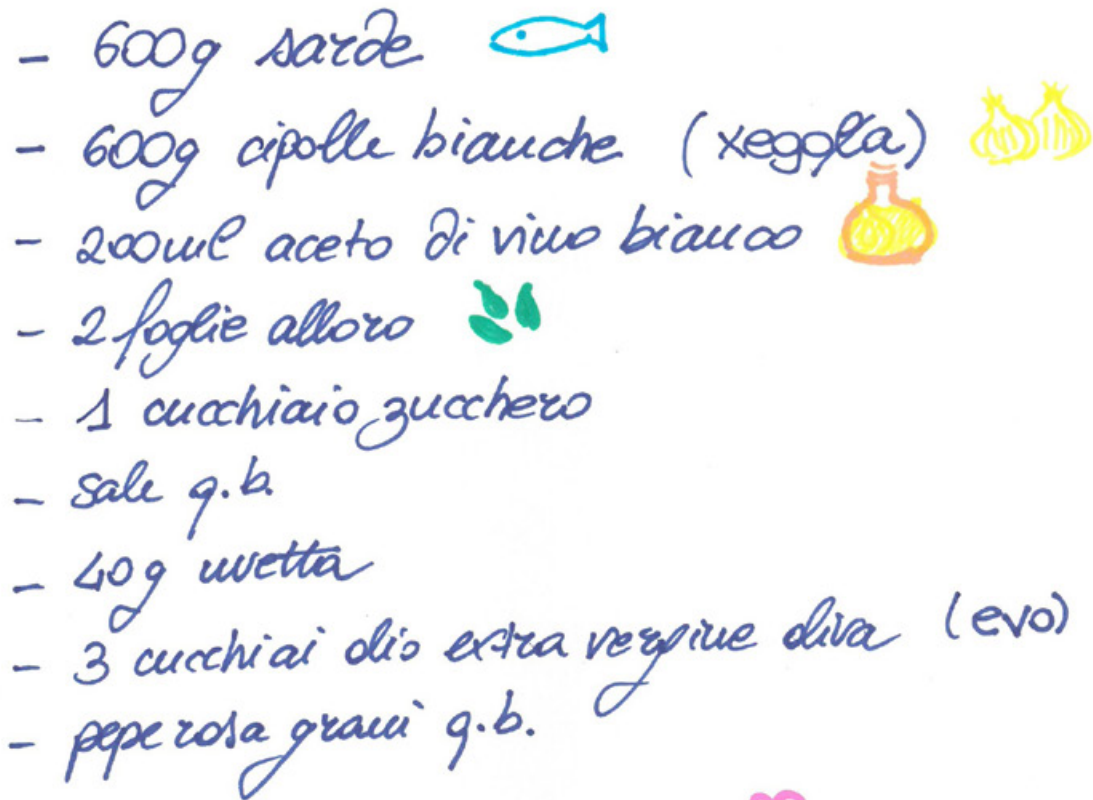 - 600g sarde
- 600g cipolle bianche (xegoła)
- 200ml aceto di vino bianco
- 2 foglie alloro
- 1 cucchiaio zucchero
- sale q.b.
- 40g uvetta
- 3 cucchiai olio extra vergine oliva (evo)
- pepe rosa grani q.b.